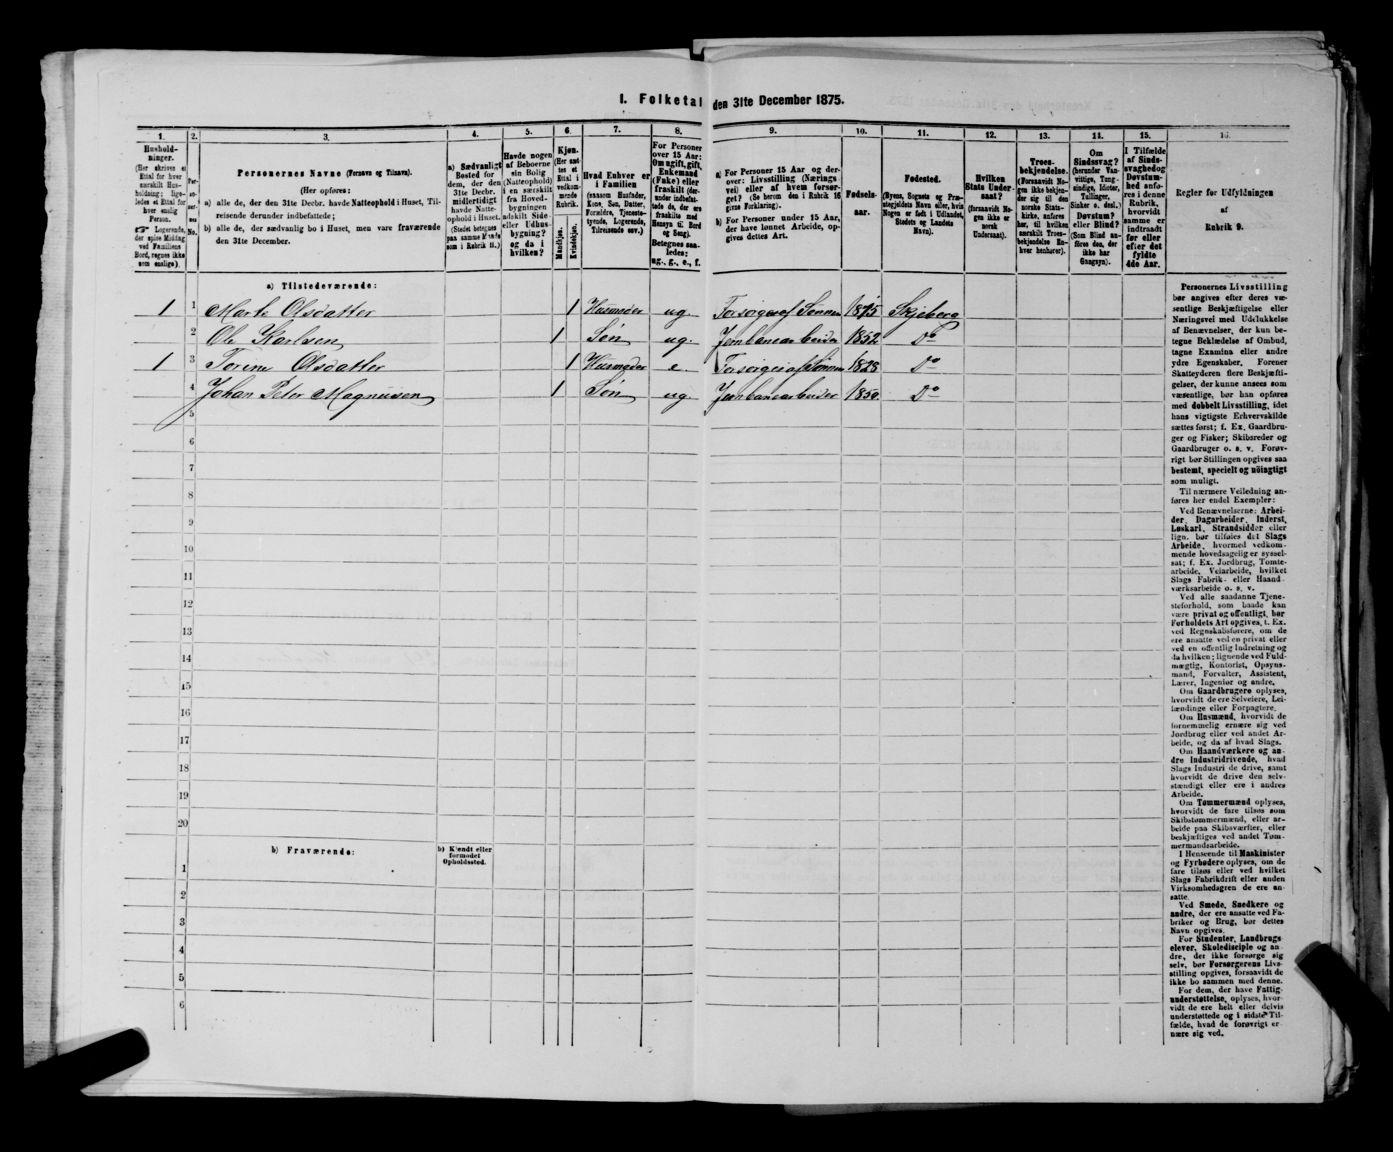 I. Folketal den 31te December 1875.
1. 2. 3. 4. 5. 6. 7. 8. 9. 10. 11. 12. 13. 14. 15. 16.
Hushold-
ninger.
(Her skrives et
Ettal for hver
særskilt Hus-
holdning; lige-
ledes et Ettal for
hver enslig
Person.
☞ Logerende,
der spise Middag
ved Familiens
Bord, regnes ikke
som enslige).
Personernes Navne (Fornavn og Tilnavn).
(Her opføres:
a) alle de, der den 31te Decbr. havde Natteophold i Huset, Til-
reisende derunder indbefattede;
b) alle de, der sædvanlig bo i Huset, men vare fraværende
den 31te December.
a) Sædvanligt
Bosted for
dem, der den
31te Decbr.
midlertidigt
havde Natte-
ophold i Huset.
(Stedet betegnes
paa samme Maade
som i Rubrik 11.)
Havde nogen
af Beboerne
sin Bolig
(Natteophold)
i en særskilt
fra Hoved-
bygningen
adskilt Side-
eller Udhus-
bygning?
og da i
hvilken?
Kjøn.
(Her sæt-
tes et
Ettal i
vedkom-
mende
Rubrik.
Mandkjøn.
Kvindekjøn.
Hvad Enhver er
i Familien
(saasom Husfader,
Kone, Søn, Datter,
Forældre, Tjeneste-
tyende, Logerende,
Tilreisende osv.)
For Personer
over 15 Aar:
Om ugift, gift,
Enkemand
(Enke) eller
fraskilt (der-
under indbefat-
tede de, der ere
fraskilte med
Hensyn til Bord
og Seng).
Betegnes saa-
ledes:
ug., g., e., f.
a) For Personer 15 Aar og der-
over: Livsstilling (Nærings
vei) eller af hvem forsør-
get? (Se herom den i Rubrik 16
givne Forklaring).
b) For Personer under 15 Aar,
der have lønnet Arbeide, op-
gives dettes Art.
Fødsels-
aar.
Fødested.
(Byens, Sognets og Præ-
stegjeldets Navn eller, hvis
Nogen er født i Udlandet,
Stedets og Landets
Navn).
Hvilken
Stats Under-
saat?
(forsaavidt No-
gen ikke er-
norsk
Undersaat).
Troes-
bekjendelse.
(Forsaavidt No-
gen ikke bekjen-
der sig til den
norske Stats-
kirke, anføres
her, til hvilken
særskilt Troes-
bekjendelse En-
hver henhører).
Om
Sindssvag?
(herunder Van-
vittige, Tung-
sindige, Idioter,
Tullinger,
Sinker o. desl.)
Døvstum?
eller Blind?
(Som Blind an-
føres den, der
ikke har
Gangsyn).
I Tilfælde
af Sinds-
svaghed og
Døvstum-
hed anfø-
res i denne
Rubrik,
hvorvidt
samme er
indtraadt
før eller
efter det
fyldte
4de Aar.
Regler for Udfyldningen
af
Rubrik 9.
a) Tilstedeværende:
1 1 Marte Olsdatter 1 Husmoder ug. Forsørges af Sønnen 1815 Skjeberg
2 Ole Karlsen 1 Søn ug. Jernbanearbeider 1852 Do
1 3 Torine Olsdatter 1 Husmoder e. Forsørges af Sønnen 1828 Do
4 Johan Peter Magnusen 1 Søn ug. Jernbanearbeider 1850 Do
5
6
7
8
9
10
11
12
13
14
15
16
17
18
19
20
b) Fraværende:
b) Kjendt eller
formodet
Opholdssted.
1
2
3
4
5
6
Personernes Livsstilling
bør angives efter deres væ-
sentlige Beskjæftigelse eller
Næringsvei med Udelukkelse
af Benævnelser, der kun be-
tegne Beklædelse af Ombud,
tagne Examina eller andre
ydre Egenskaber. Forener
Skatteyderen flere Beskjæfti-
gelser, der kunne ansees som
væsentlige, bør han opføres
med dobbelt Livsstilling, idet
hans vigtigste Erhvervskilde
sættes først; f. Ex. Gaardbru-
ger og Fisker; Skibsreder og
Gaardbruger o. s. v. Forøv-
rigt bør Stillingen opgives saa
bestemt, specielt og nöiagtigt
som muligt.
Til nærmere Veiledning an-
føres her endel Exempler:
Ved Benævnelserne: Arbei-
der, Dagarbeider, Inderst,
Løskarl, Strandsidder eller
lign. bør tilføies det Slags
Arbeide, hvormed vedkom-
mende hovedsagelig er syssel-
sat; f. Ex. Jordbrug, Tomte-
arbeide, Veiarbeide, hvilket
Slags Fabrik- eller Haand
værksarbeide o. s. v.
Ved alle saadanne Tjene-
steforhold, som baade kan
være privat og offentligt, bør
Forholdets Art opgives, t. Ex.
ved Regnskabsførere, om de
ere ansatte ved en privat eller
ved en offentlig Indretning og
da hvilken; lignende ved Fuld-
mægtig, Kontorist, Opsyns-
mand, Forvalter, Assistent,
Lærer, Ingeniør og andre.
Om Gaardbrugere oplyses,
hvorvidt de ere Selveiere, Lei-
lændinge eller Forpagtere.
Om Husmænd, hvorvidt de
fornemmelig ernære sig ved
Jordbrug eller ved andet Ar-
beide, og da af hvad Slags.
Om Haandværkere og an-
dre Industridrivende, hvad
Slags Industri de drive, samt
hvorvidt de drive den selv-
stændigt eller ere i andres
Arbeide.
Om Tømmermænd oplyses,
hvorvidt de fare tilsøs som
Skibstømmermænd, eller ar-
beide paa Skibsværfter, eller
beskjæftiges ved andet Tøm-
mermandsarbeide.
I Henseende til Maskinister
og Fyrbødere oplyses, om de
fare tilsøs eller ved hvilket
Slags Fabrikdrift eller anden
Virksomhedsgren de ere an-
satte.
Ved Smede, Snedkere og
andre, der ere ansatte ved Fa-
briker og Brug, bør dettes
Navn opgives.
For Studenter, Landbrugs
elever, Skoledisciple og an-
dre, der ikke forsørge sig
selv, bør Forsørgerens Livs-
stilling opgives, forsaavidt de
ikke bo sammen med denne.
For dem, der have Fattig
understøttelse, oplyses, hvor-
vidt de ere helt eller delvis
understøttede og i sidste Til-
fælde, hvad de forøvrigt er-
nære sig ved.